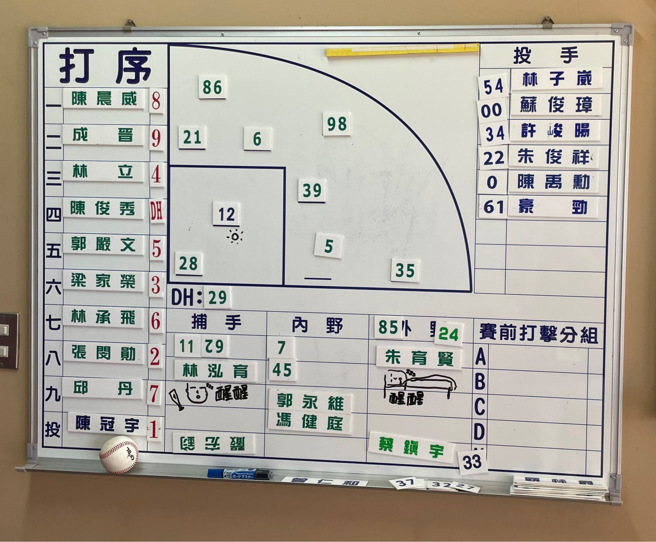 打序
一 陳晨威 8
二 成晉 9
三 林立 4
四 陳俊秀 DH
五 郭嚴文 5
六 梁家榮 3
七 林承飛 6
八 張閔勛 2
九 邱丹 7
投 陳冠宇 1
86
98
21 6
39
12
5
28
35
DH: 29
投手
54 林子崴
00 蘇俊璋
34 許峻暘
22 朱俊祥
0 陳禹勳
61 豪勁
捕手
11 29
林泓育
醒醒
嚴宏鈞
內野
7
45
郭永維
馮健庭
85 外野 24
朱育賢
醒醒
蔡鎮宇
33
賽前打擊分組
A
B
C
D
曾仁和
37 32 27